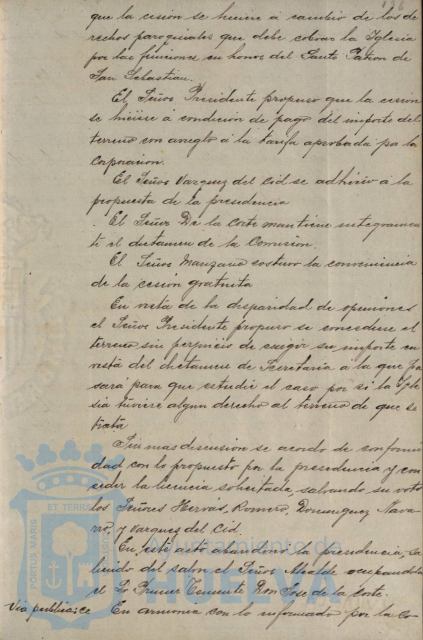 que la cesión se hiciera á cambio de los de
rechos parroquiales que debe cobrar la Iglesia
por las funciones en honor del Santo Patron de
San Sebastian.
El Señor Presidente propuso que la cesion
se hiciese á condición de pago del importe del
terreno con arreglo á la tarifa aprobada por la
Corporacion.
El Señor Vazquez del Cid se adhirió á la
propuesta de la presidencia
El Señor De la Corte mantiene integramen
te el dictamen de la Comision.
El Señor Manzano sostuvo la conveniencia
de la cesión gratuita
En vista de la disparidad de opiniones
el Señor Presidente propuso se concediese el
terreno sin perjuicio de exigir su importe en
vista del dictamen de Secretaria á la que pa
sará para que estudie el caso por si la Igle
sia tuviere algun derecho al terreno de que se
trata
Sin mas discusion se acordo de conformi
dad con lo propuesto por la presidencia y con
ceder la licencia solicitada, salvando su voto
los Señores Hervás, Romero, Dominguez Nava
rro, y Vazquez del Cid.
En este acto abandonó la presidencia, sa
liendo del salon el Señor Alcalde ocupandola
el Primer Teniente Don Jose de la Corte.
Via publica
En armonia con lo informado por la Co
Ayuntamiento de
HUELVA
PORTUS MARIS
ET TERRAE
CUSTODIA